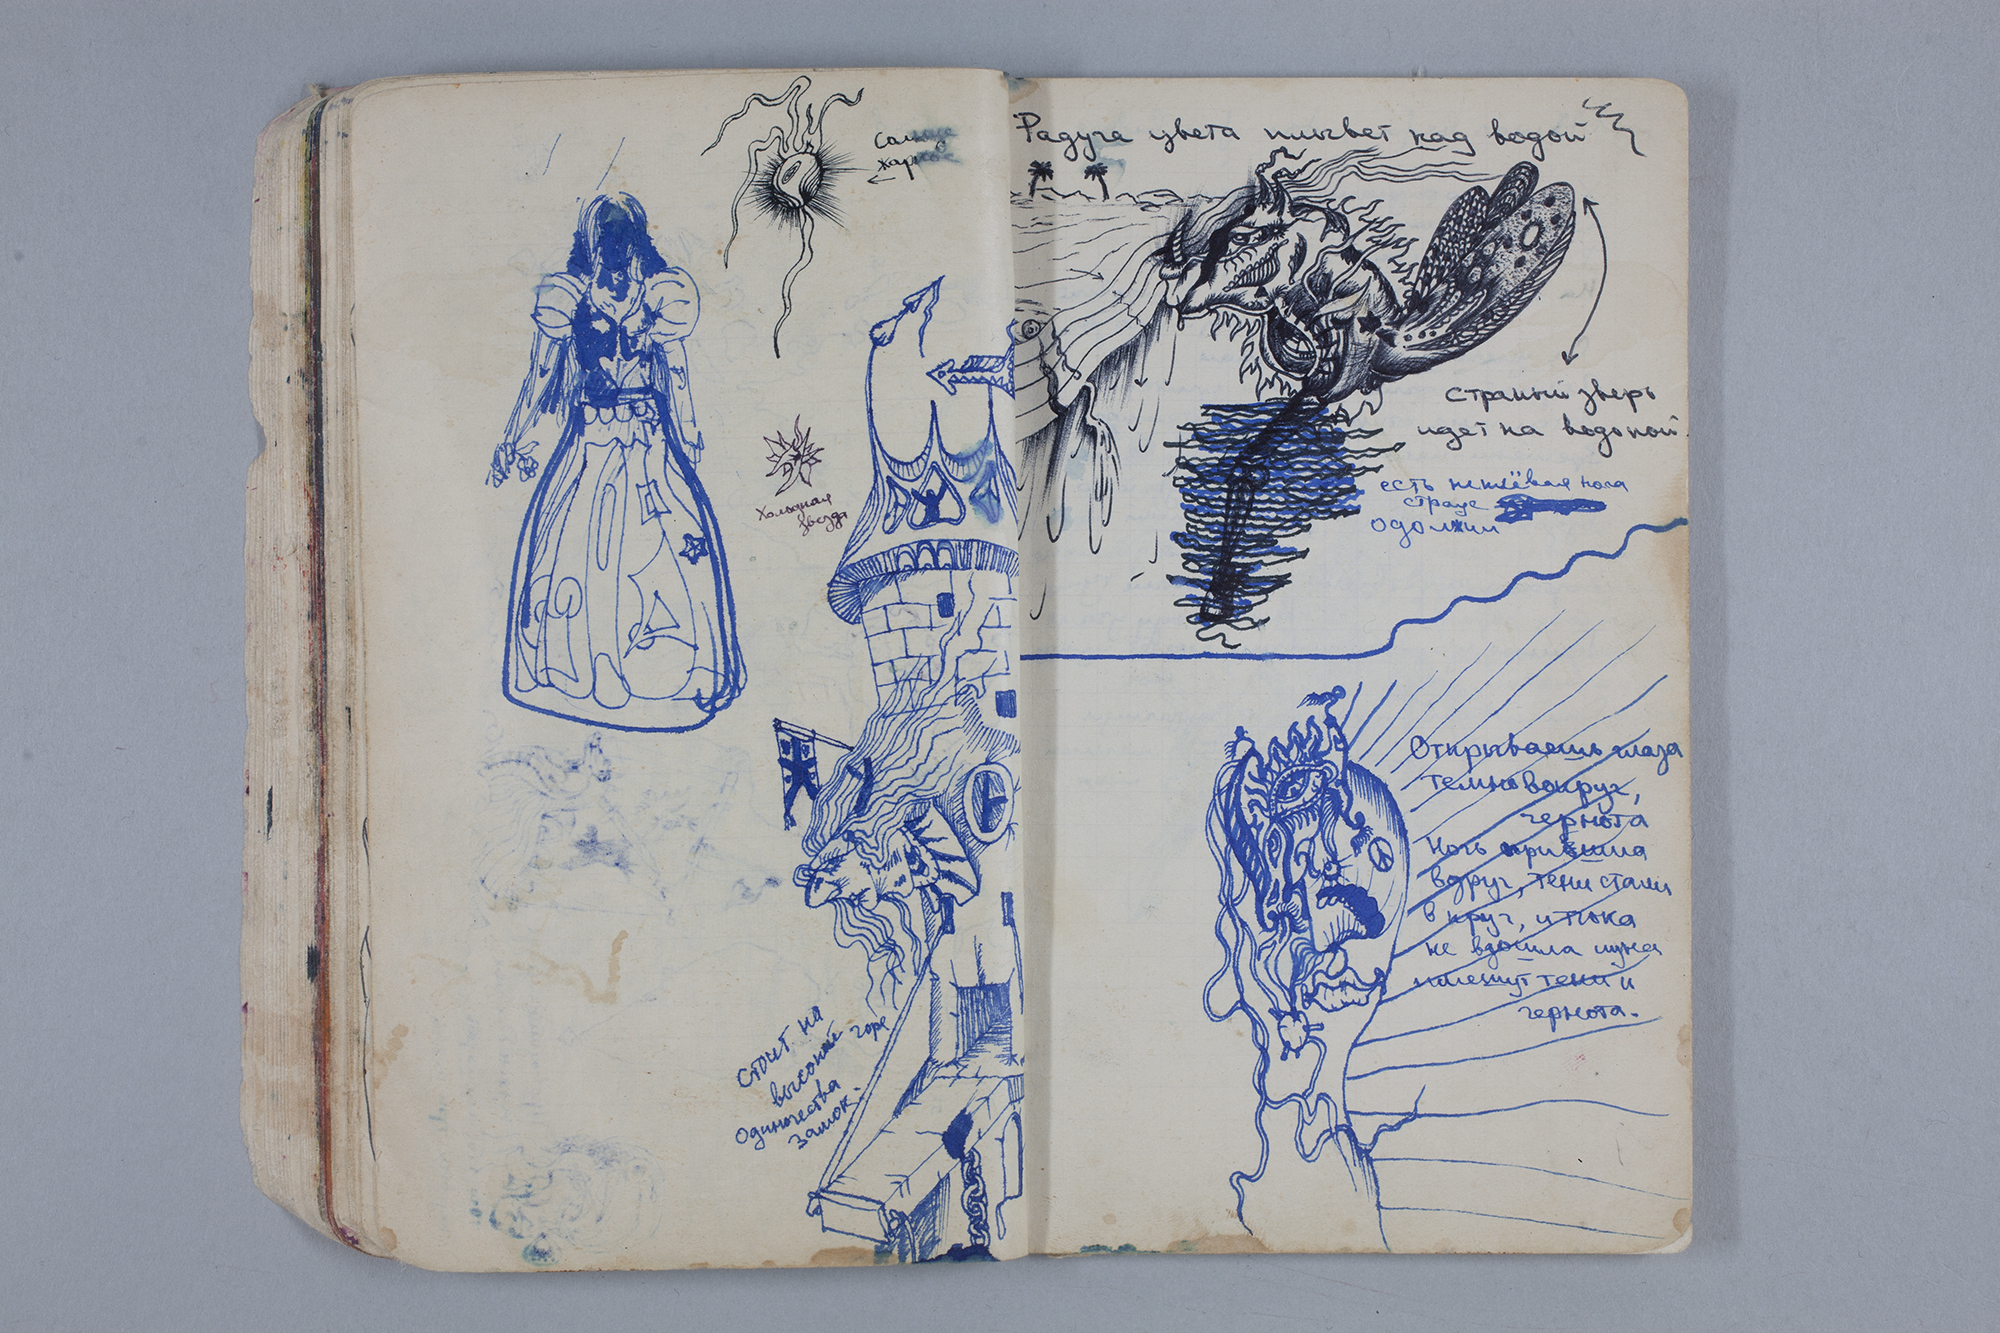 Солнце
жаркое
Холодная
звезда
Стоит на
высокой горе
одиночества
замок.
Радуга цвета плывет над водой
страный зверь
идет на водопой
есть нежёвая нога
страус
одолжил
Открываешь глаза
темно вокруг,
чернота
Ночь пришла
вдруг, тени стали
в круг, и пока
не взошла луна
пляшут тени и
чернота.